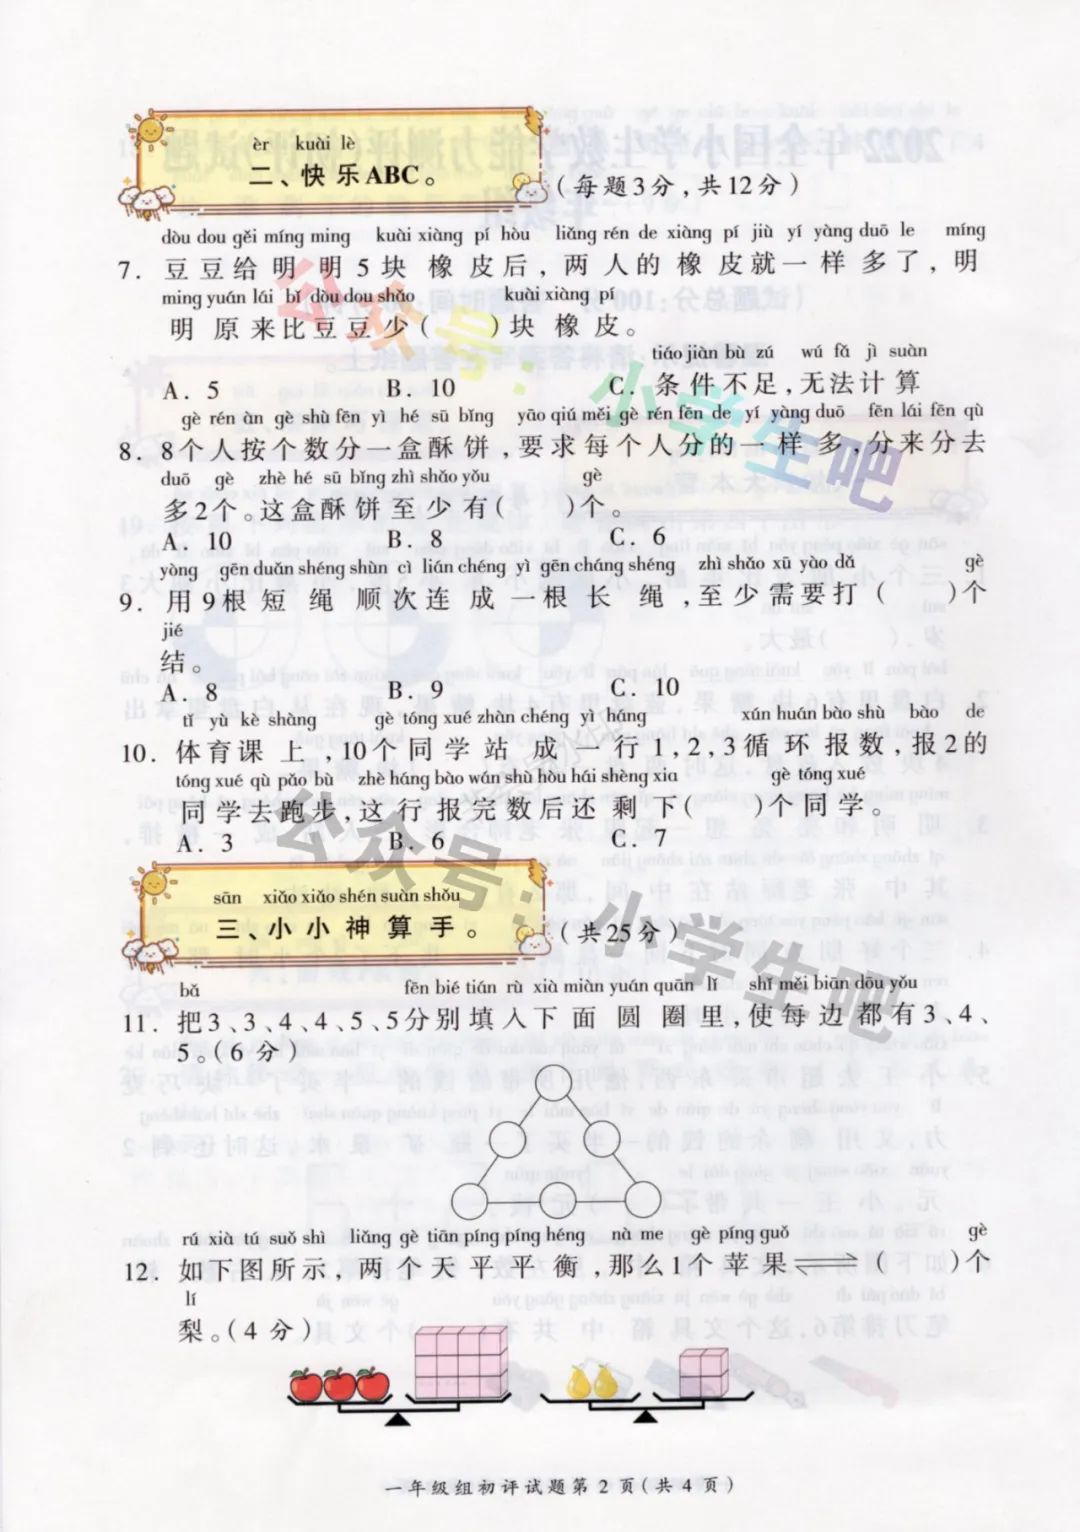 èr kuài lè
二、快乐ABC。
(每题3分,共12分)
dòu dou gěi míng ming kuài xiàng pí hòu liǎng rén de xiàng pí jiù yí yàng duō le míng
7. 豆豆给明明5块橡皮后,两人的橡皮就一样多了,明
ming yuán lái bǐ dòu dou shǎo kuài xiàng pí
明原来比豆豆少( )块橡皮。
tiáo jiàn bù zú wú fǎ jì suàn
A. 5 B. 10 C. 条件不足,无法计算
gè rén àn gè shù fēn yì hé sū bǐng yāo qiú měi gè rén fēn de yí yàng duō fēn lái fēn qù
8. 8个人按个数分一盒酥饼,要求每个人分的一样多,分来分去
duō gè zhè hé sū bǐng zhì shǎo yǒu gè
多2个。这盒酥饼至少有( )个。
A. 10 B. 8 C. 6
yòng gēn duǎn shéng shùn cì lián chéng yì gēn cháng shéng zhì shǎo xū yào dǎ gè
9. 用9根短绳顺次连成一根长绳,至少需要打( )个
jié
结。
A. 8 B. 9 C. 10
tǐ yù kè shàng gè tóng xué zhàn chéng yì háng xún huán bào shù bào de
10. 体育课上,10个同学站成一行1,2,3循环报数,报2的
tóng xué qù pǎo bù zhè háng bào wán shù hòu hái shèng xia gè tóng xué
同学去跑步,这行报完数后还剩下( )个同学。
A. 3 B. 6 C. 7
sān xiǎo xiǎo shén suàn shǒu
三、小小神算手。
(共25分)
bǎ fēn bié tián rù xià miàn yuán quān lǐ shǐ měi biān dōu yǒu
11. 把3、3、4、4、5、5分别填入下面圆圈里,使每边都有3、4、
5。(6分)
rú xià tú suǒ shì liǎng gè tiān píng píng héng nà me gè píng guǒ gè
12. 如下图所示,两个天平平衡,那么1个苹果 ( )个
lí
梨。(4分)
一年级组初评试题第2页(共4页)
公众号:小学生吧
公众号:小学生吧